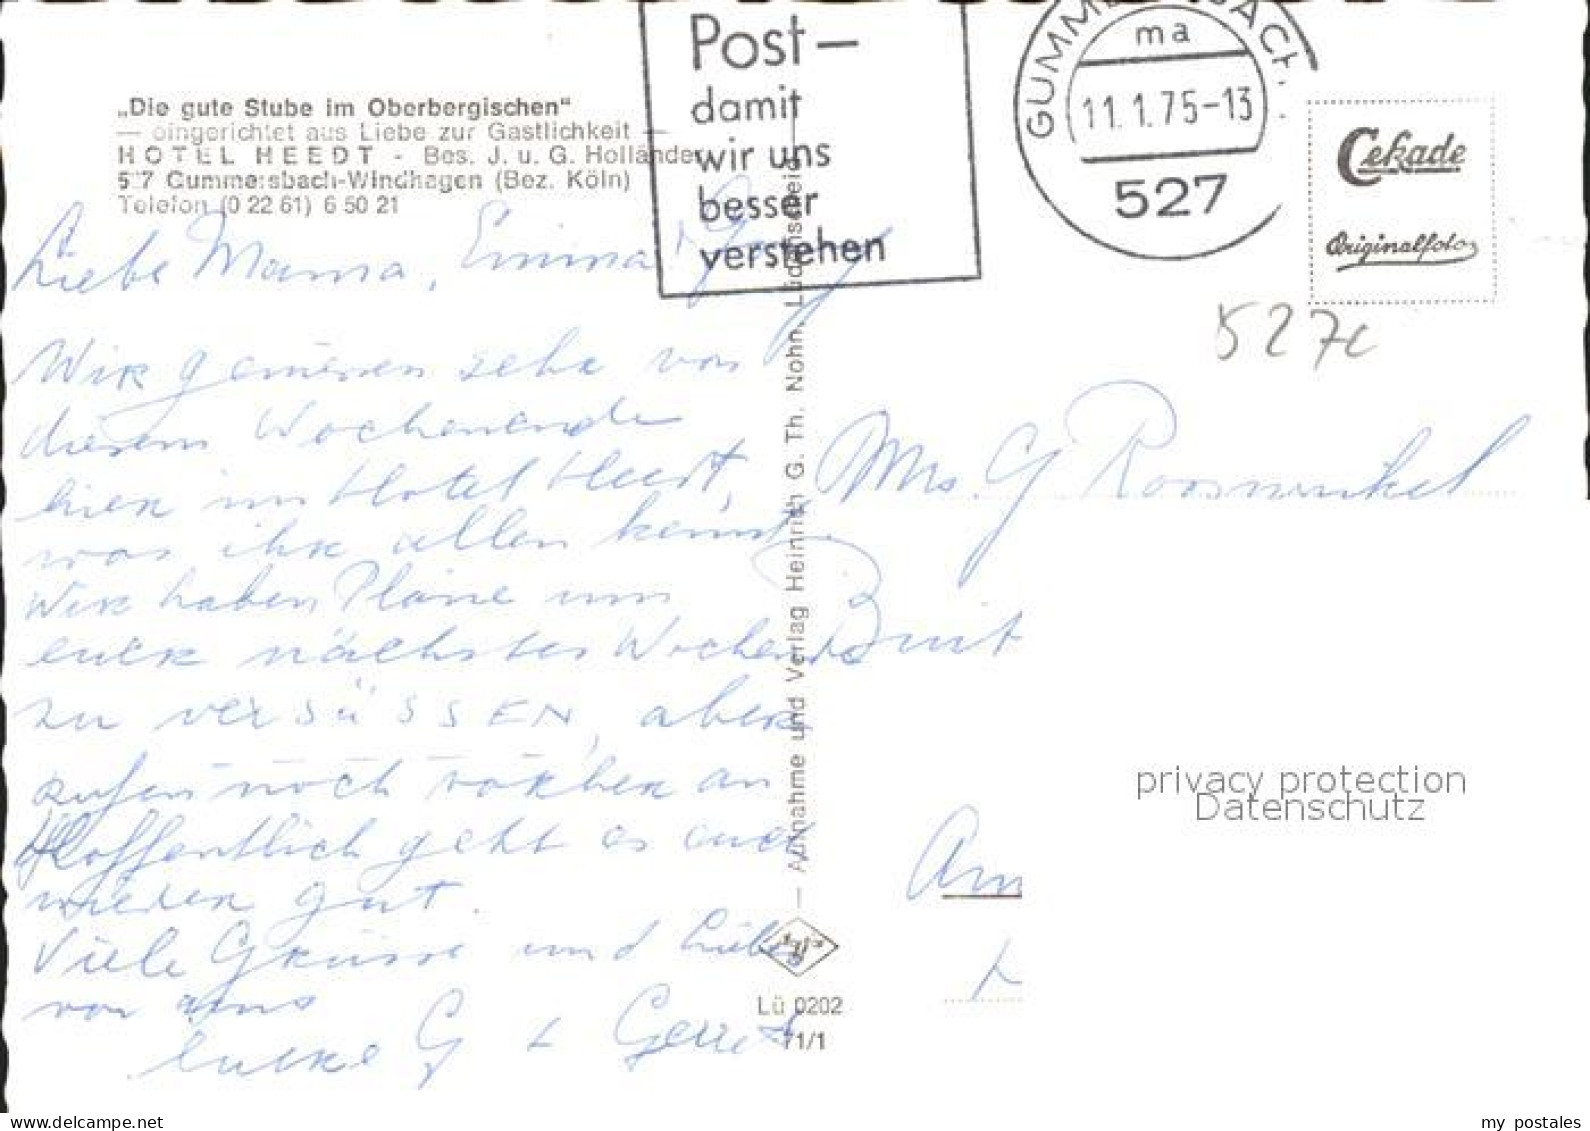 Post–
damit
wir uns
besser
verstehen
GUMMERSBACH
ma
11.1.75-13
527
„Die gute Stube im Oberbergischen"
— eingerichtet aus Liebe zur Gastlichkeit —
HOTEL HEEDT - Bes. J. u. G. Hollände
527 Gummersbach-Windhagen (Bez. Köln)
Telefon (0 22 61) 6 50 21
Cekade
Originalfoto
527c
Liebe Mama, Emma
Wir geniessen sehr von
diesem Wochenende
hier im Hotel Heedt,
was ihr allen kennt.
Wir haben Pläne um
euer nächstes Wochenende
zu verSüSSEN, aber
rufen noch vorher an
Hoffentlich geht es euch
wieder gut.
Viele Grüsse und Liebe
von uns
eure G + Gerret
— Aufnahme und Verlag Heinrich G. Th. Nohn, Lüdenscheid
Lü 0202
71/1
Mrs. G Rooswinkel
Buit
Am
privacy protection
Datenschutz
www.delcampe.net
my_postales